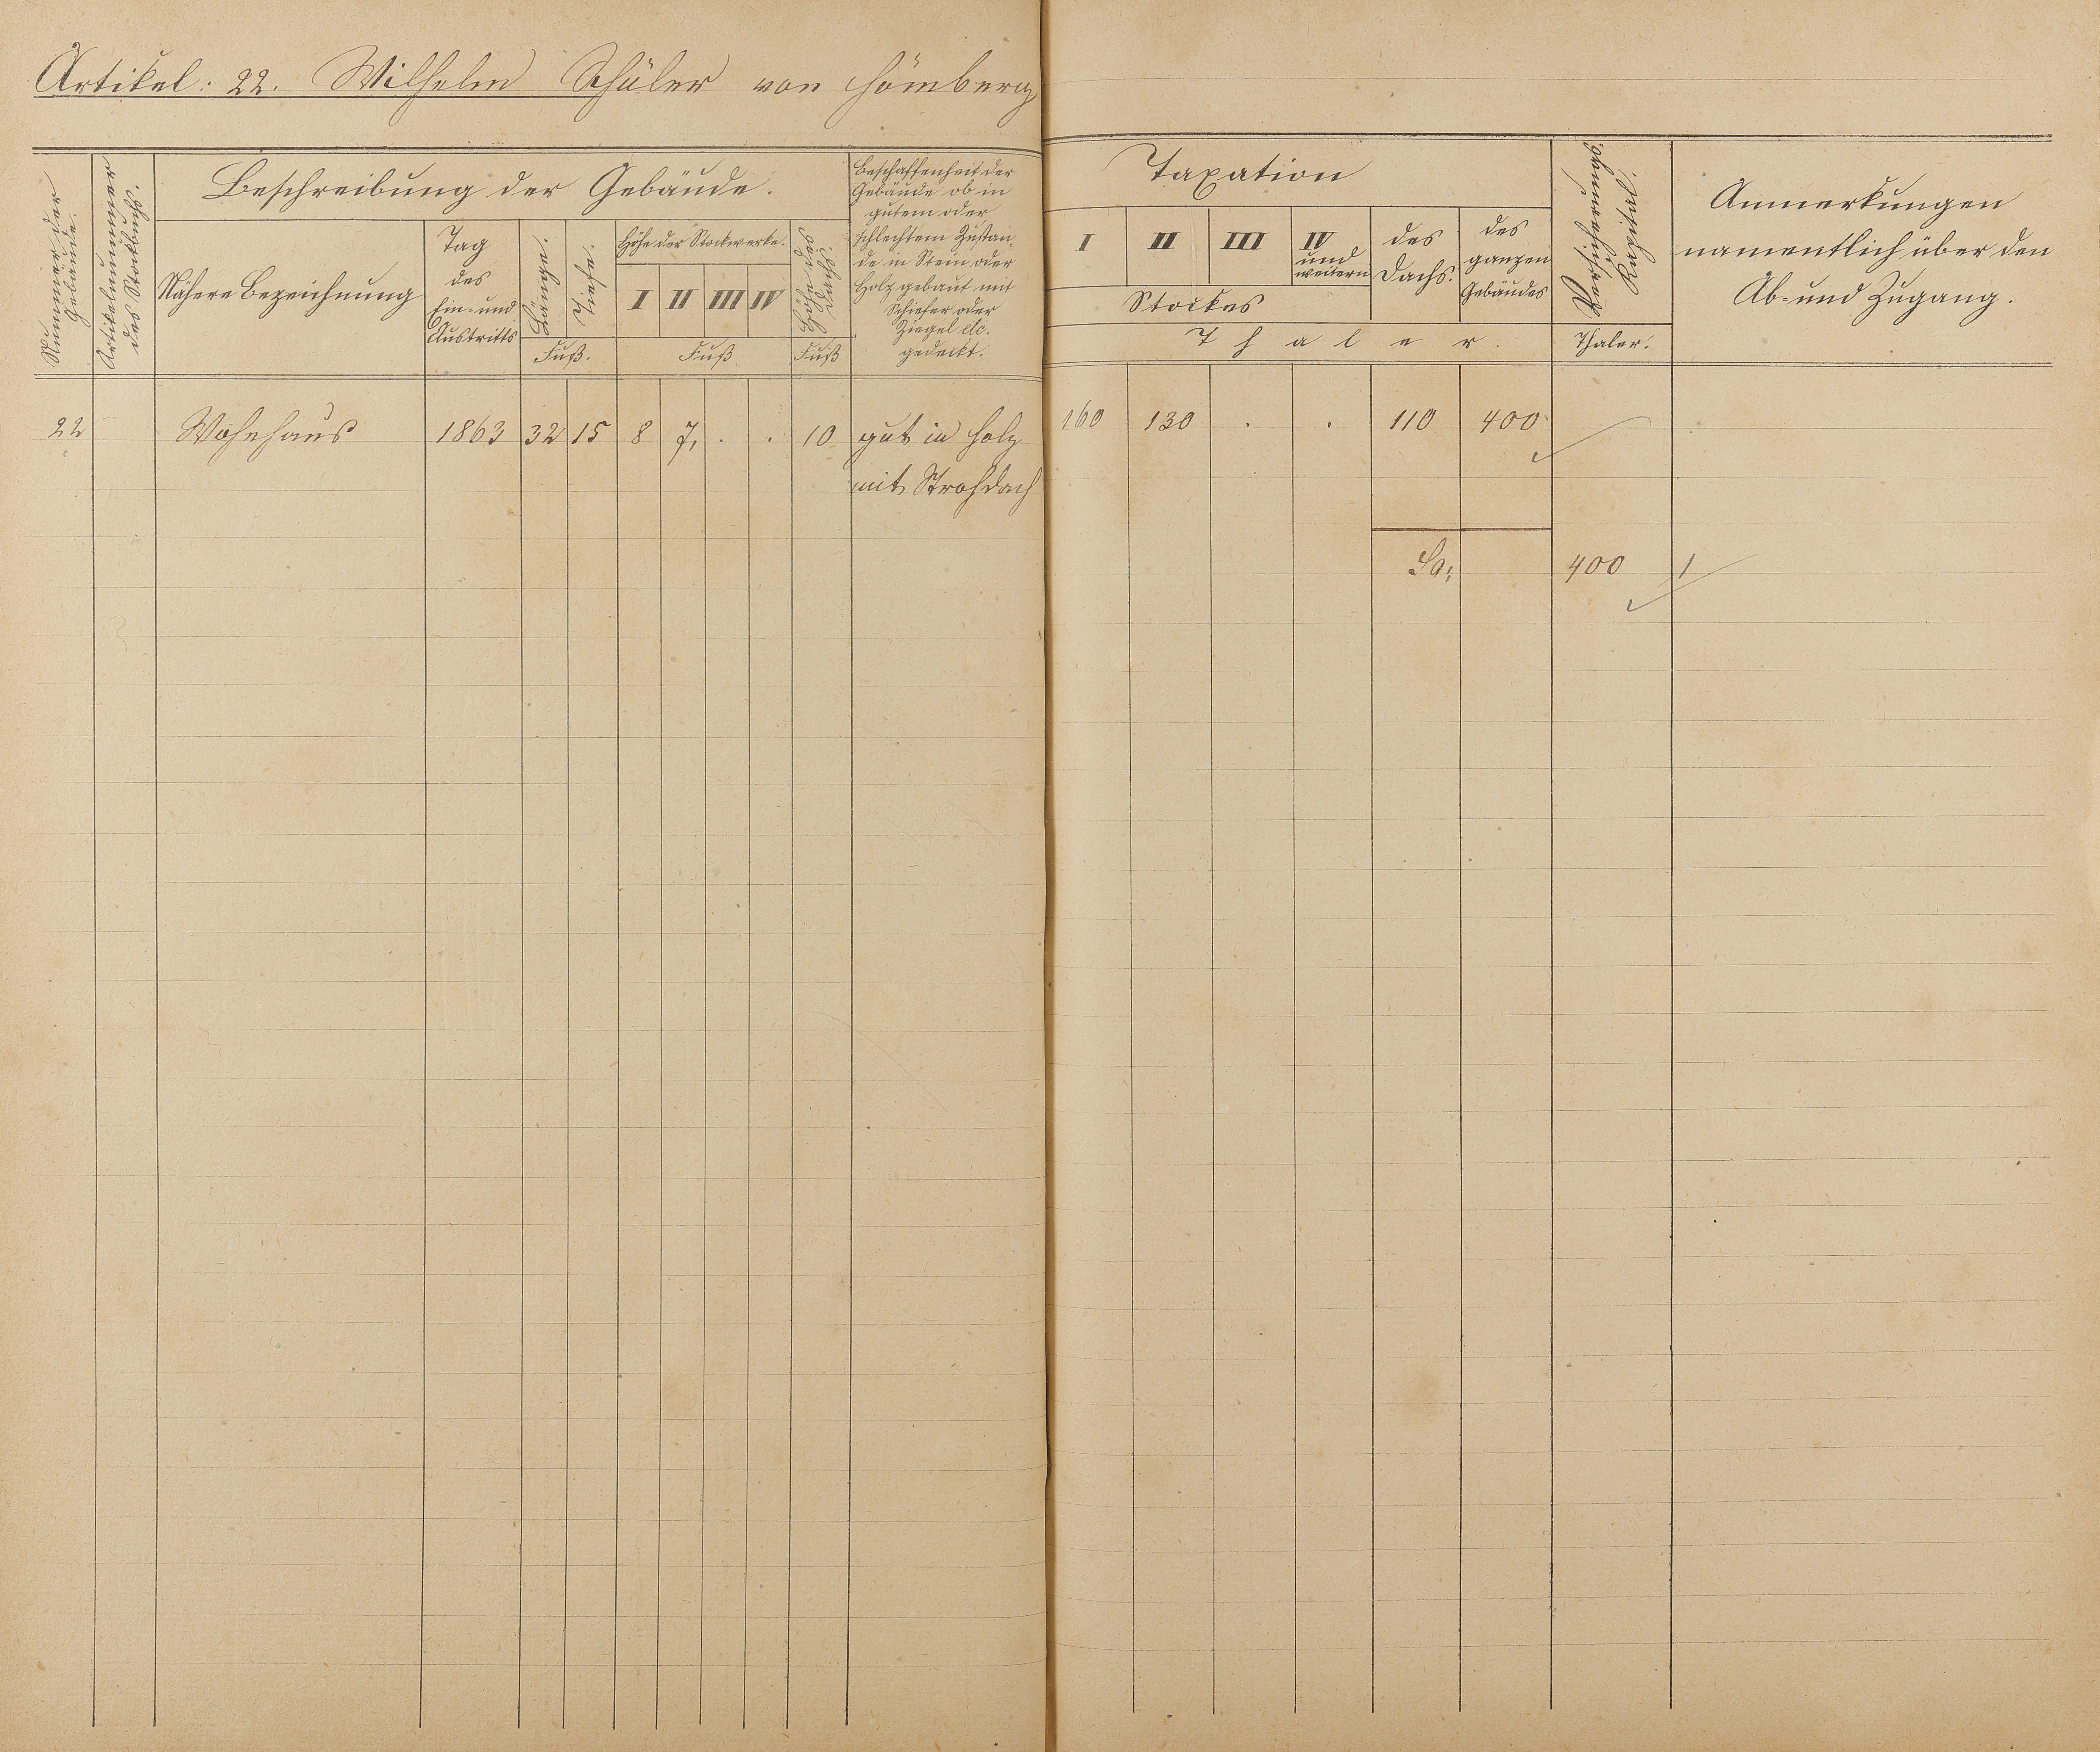 Artikel: 22. Wilhelm Schüler von Hömberg
Nummer der
Gebäude.
Artikelnummer
des Stockbuchs.
Beschreibung der Gebäude.
Nähere Bezeichnung
Tag
des
Ein- und
Austritts
Länge.
Tiefe.
Fuß.
Höhe der Stockwerke.
I II III IV
Fuß
Höhe des
Dachs.
Fuß
Beschaffenheit der
Gebäude ob in
gutem oder
schlechtem Zustan-
de in Stein oder
Holz gebaut mit
Schiefer oder
Ziegel etc.
gedeckt.
Taxation
I II III IV
und
weitern
Stockes
des
Dachs.
des
ganzen
Gebäudes
Thaler.
Versicherungs
Kapital.
Thaler.
Anmerkungen
namentlich über den
Ab- und Zugang.
22 Wohnhaus 1863 32 15 8 7, . . 10 gut in Holz 160 130 . . 110 400
mit Strohdach
Sa: 400 1